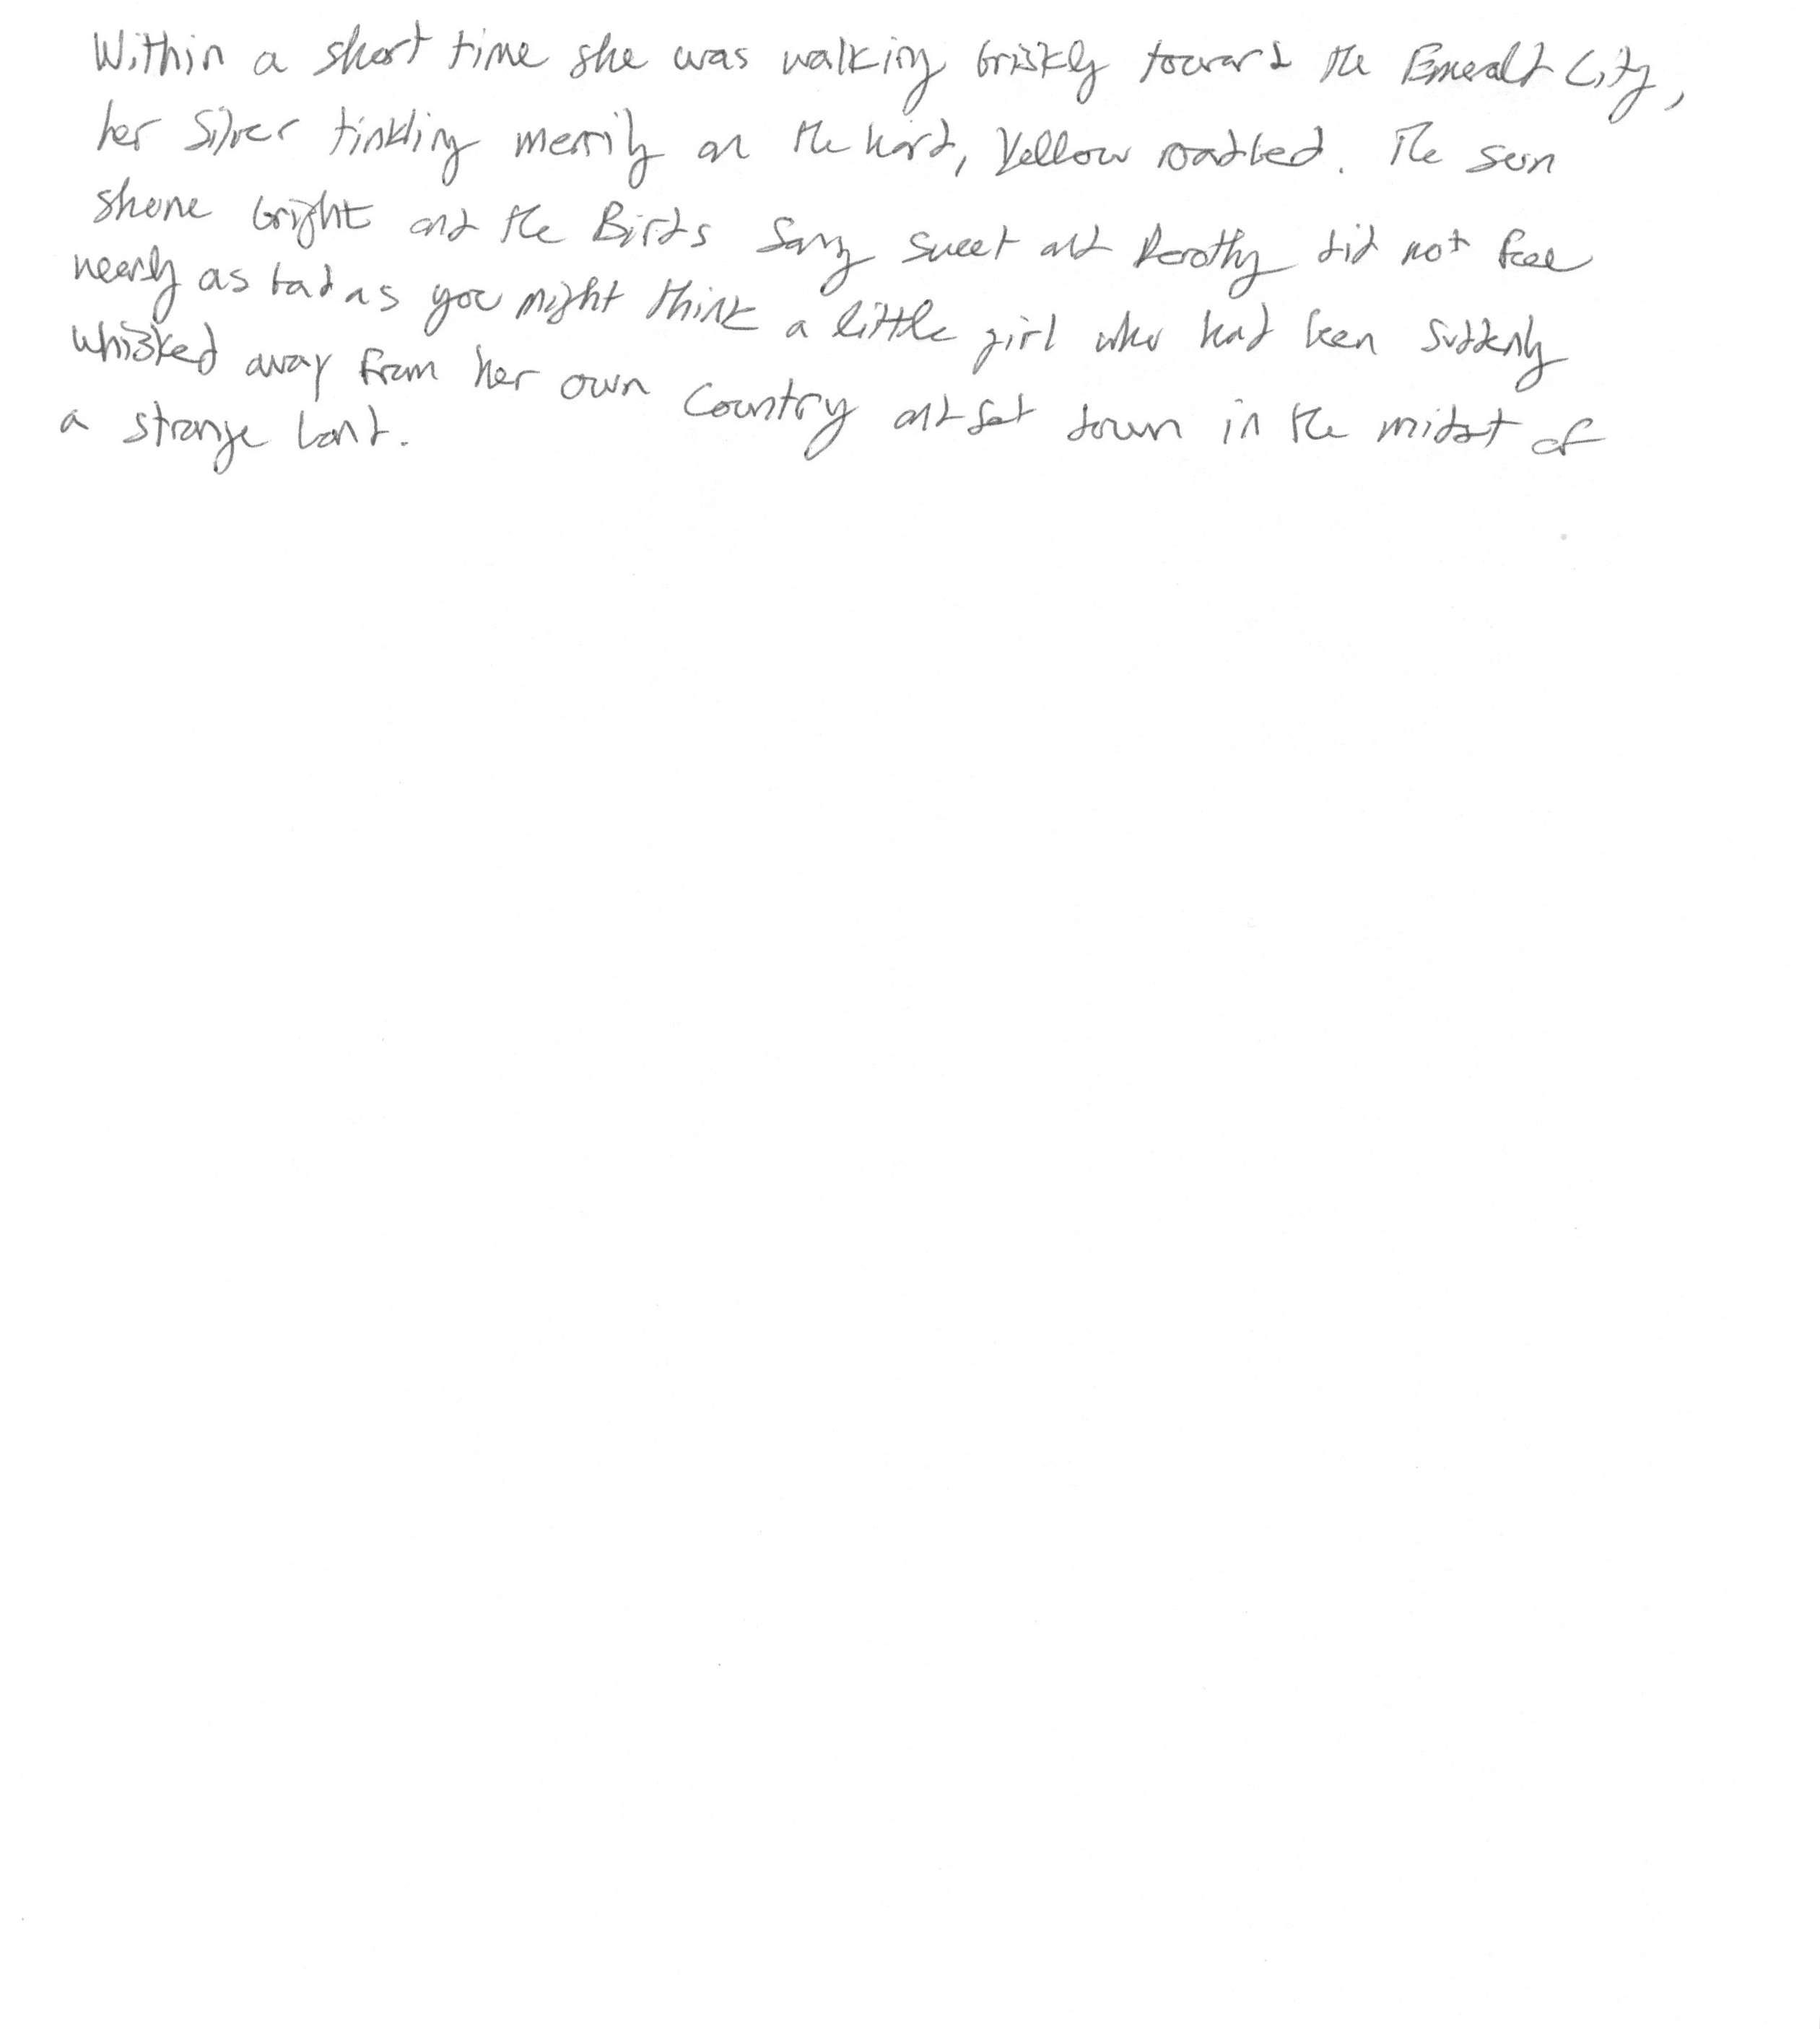 Within a short time she was walking briskly toward the Emerald City,
her Silver tinkling merrily on the hard, Yellow roadbed. The sun
shone bright and the Birds Sang sweet and Dorothy did not feel
nearly as bad as you might think a little girl who had been suddenly
whisked away from her own Country and set down in the midst of
a strange land.